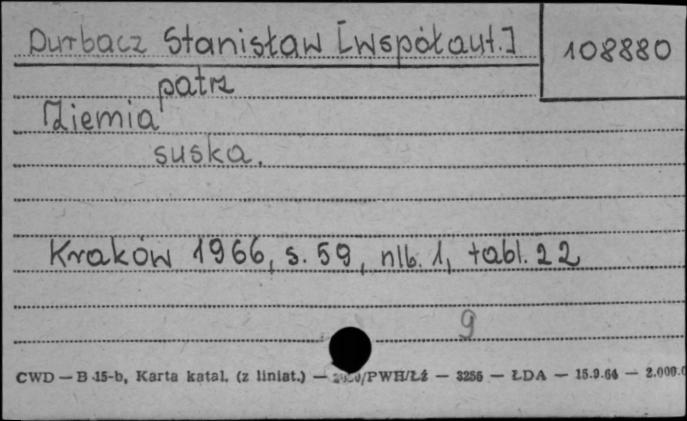 Durbacz Stanisław [współaut.]
108880
patrz
Ziemia
suska.
Kraków 1966, s. 59, nlb. 1, tabl. 22
9
CWD — B 15-b, Karta katal. (z liniat.) — /PWH/Łź — 3256 — ŁDA — 15.9.64 — 2.000.0